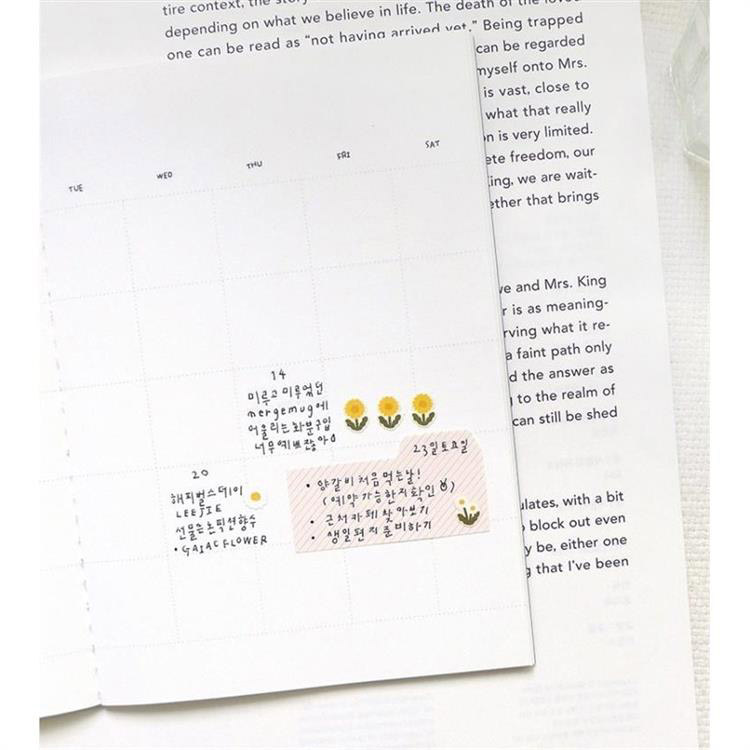 tire context, the
depending on what we believe in life. The death of the loved
one can be read as “not having arrived yet.” Being trapped
can be regarded
myself onto Mrs.
is vast, close to
what that really
is very limited.
freedom, our
we are wait-
that brings
and Mrs. King
is as meaning-
what it re-
a faint path only
the answer as
to the realm of
can still be shed
with a bit
block out even
be, either one
that I've been
TUE WED THU FRI SAT
14
미루고 미루었던
mergemug에
어울리는 화분구입
너무 예쁘잖아
20
해피벌스데이
LEEJIE
선물은 논픽션향수
• GAIAC FLOWER
23일 토요일
• 양갈비 처음 먹는 날!
(예약 가능한지 확인)
• 근처 카페 찾아보기
• 생일 편지 준비하기